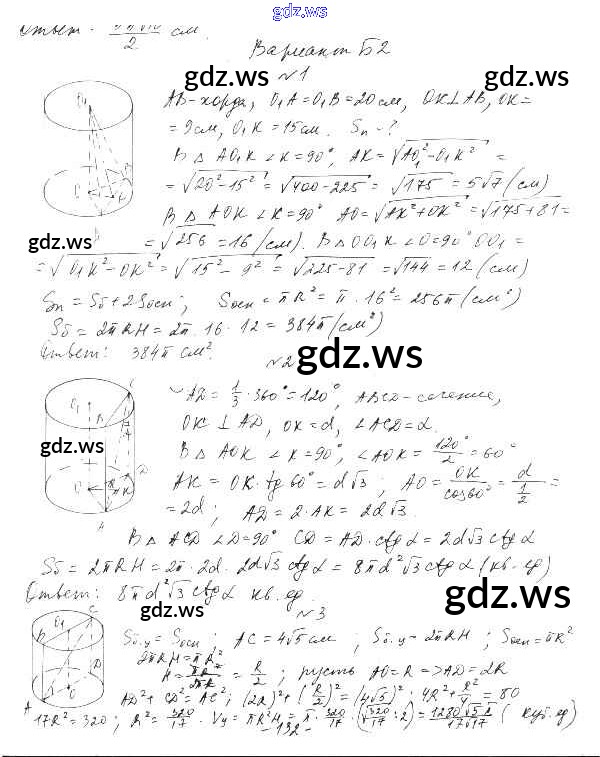 gdz.ws
Ответ - см.
2
Вариант Б2
№1
AB-хорда, O₁A=O₁B=20см, OK⊥AB, OK=
=9см, O₁K=15см. Sп -?
В △ AO₁K ∠K=90°, AK=√AO₁²-O₁K² =
=√20²-15² = √400-225 = √175 = 5√7 (см)
В △ AOK ∠K=90° AO=√AK²+OK² = √175+81 =
=√256 = 16 (см). В △ OO₁K ∠O=90° OO₁ =
=√O₁K²-OK² = √15²-9² = √225-81 = √144 = 12 (см)
Sп = Sб + 2Sосн; Sосн = πR² = π·16² = 256π (см²)
Sб = 2πRH = 2π·16·12 = 384π (см²)
Ответ: 384π см².
№2
◡AD = 1/3·360° = 120°, ABCD-сечение,
OK ⊥ AD, OK=d, ∠ACD=α.
В △ AOK ∠K=90°, ∠AOK = 120°/2 = 60°
AK = OK·tg60° = d√3; AO = OK/cos60° = d/(1/2) =
=2d; AD = 2·AK = 2d√3.
В △ ACD ∠D=90° CD = AD·ctgα = 2d√3 ctgα
Sб = 2πRH = 2π·2d·2d√3 ctgα = 8πd²√3 ctgα (кв.ед)
Ответ: 8πd²√3 ctgα кв.ед.
№3
Sб.у = Sосн; AC = 4√5 см; Sб.у = 2πRH; Sосн = πR²
2πRH = πR²
H = πR²/2πR = R/2; пусть AO=R => AD=2R
AD²+CD² = AC²; (2R)²+(R/2)² = (4√5)²; 4R²+R²/4 = 80
17R²=320; R²=320/17. Vу = πR²H = π·320/17·(√320/17 : 2) = 1280√5π/17√17 (куб.ед)
-132-
gdz.ws
gdz.ws
gdz.ws
gdz.ws
gdz.ws
gdz.ws
gdz.ws
gdz.ws
gdz.ws